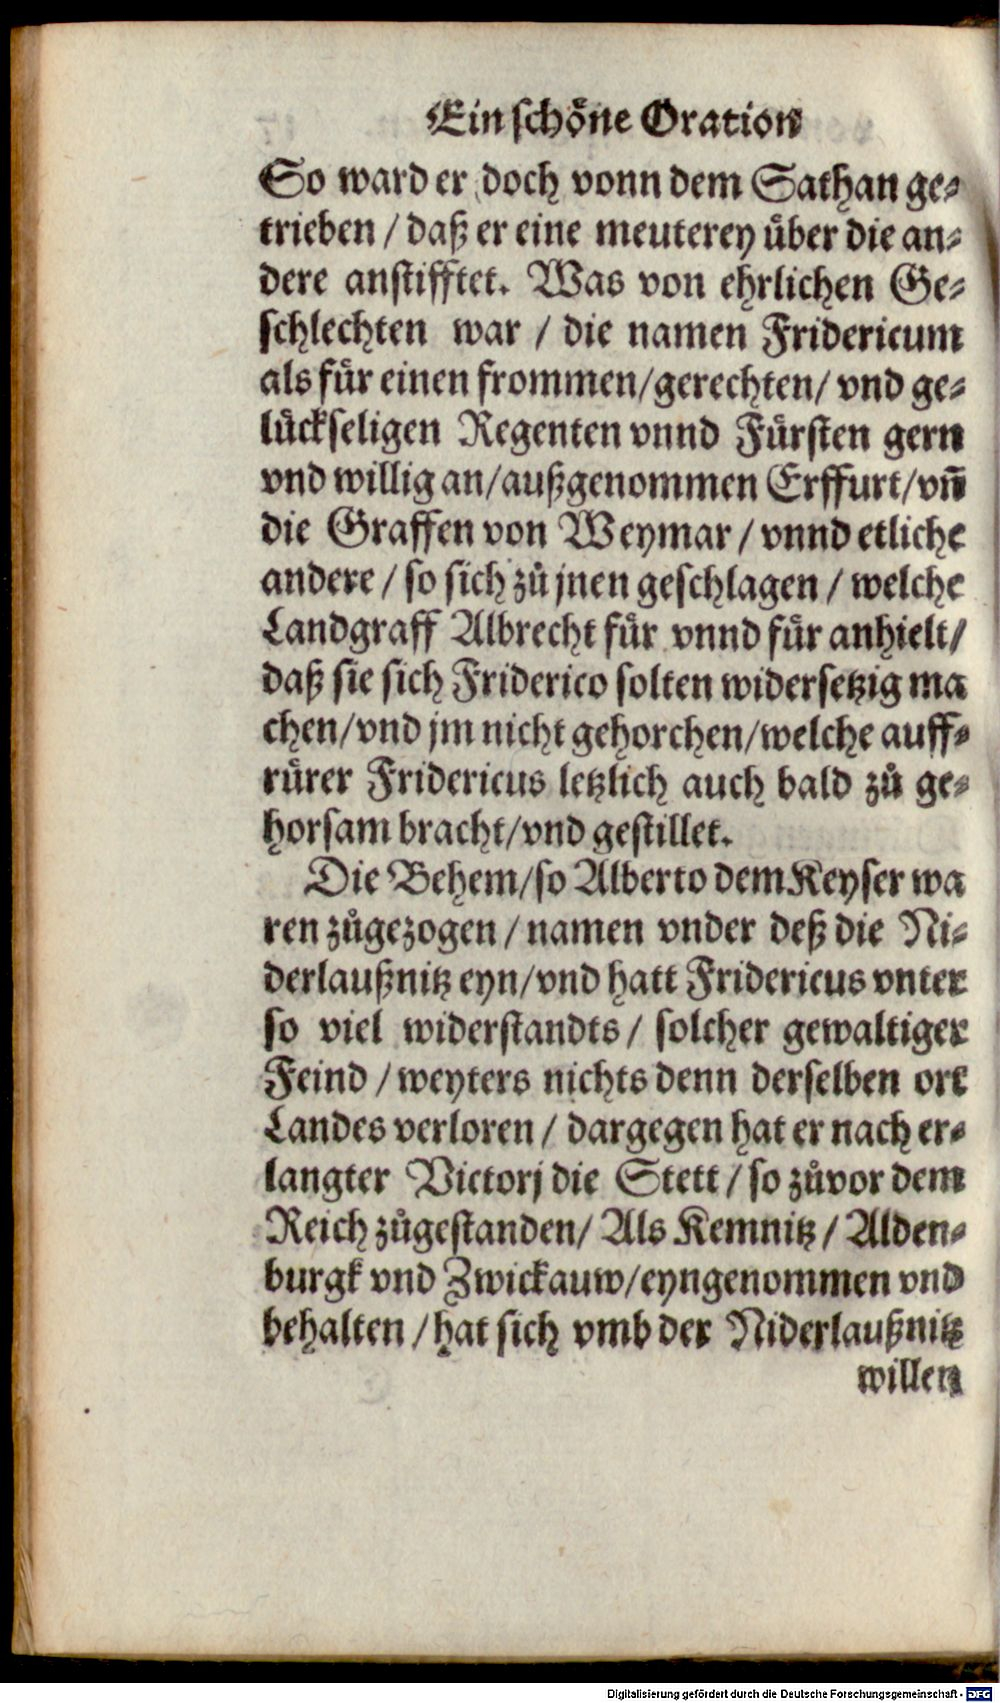 Ein schöne Oration
So ward er doch vonn dem Sathan ge-
trieben / daß er eine meuterey über die an-
dere anstifftet. Was von ehrlichen Ge-
schlechten war / die namen Fridericum
als für einen frommen/gerechten/ vnd ge-
lückseligen Regenten vnnd Fürsten gern
vnd willig an/außgenommen Erffurt/vñ
die Graffen von Weymar / vnnd etliche
andere / so sich zů jnen geschlagen / welche
Landgraff Albrecht für vnnd für anhielt/
daß sie sich Friderico solten widersetzig ma
chen/vnd jm nicht gehorchen/welche auff-
rürer Fridericus letzlich auch bald zů ge-
horsam bracht/vnd gestillet.
Die Behem/so Alberto dem Keyser wa
ren zůgezogen / namen vnder deß die Ni-
derlaußnitz eyn/vnd hatt Fridericus vnter
so viel widerstandts / solcher gewaltiger
Feind / weyters nichts denn derselben ort
Landes verloren / dargegen hat er nach er-
langter Victorj die Stett / so zůvor dem
Reich zůgestanden/ Als Kemnitz / Alden-
burgk vnd Zwickauw/eyngenommen vnd
behalten / hat sich vmb der Niderlaußnitz
willen
Digitalisierung gefördert durch die Deutsche Forschungsgemeinschaft - DFG